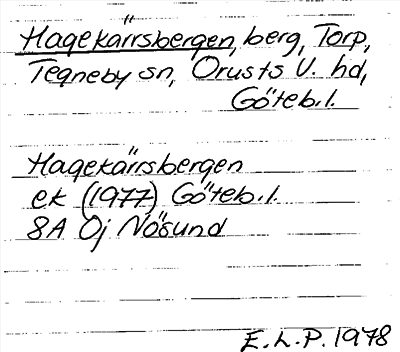 Hagekärrsbergen, berg, Torp,
Tegneby sn, Orusts V. hd,
Göteb.l.
Hagekärrsbergen
ek (1977) Göteb.l.
8A Oj Nösund
E.L.P. 1978